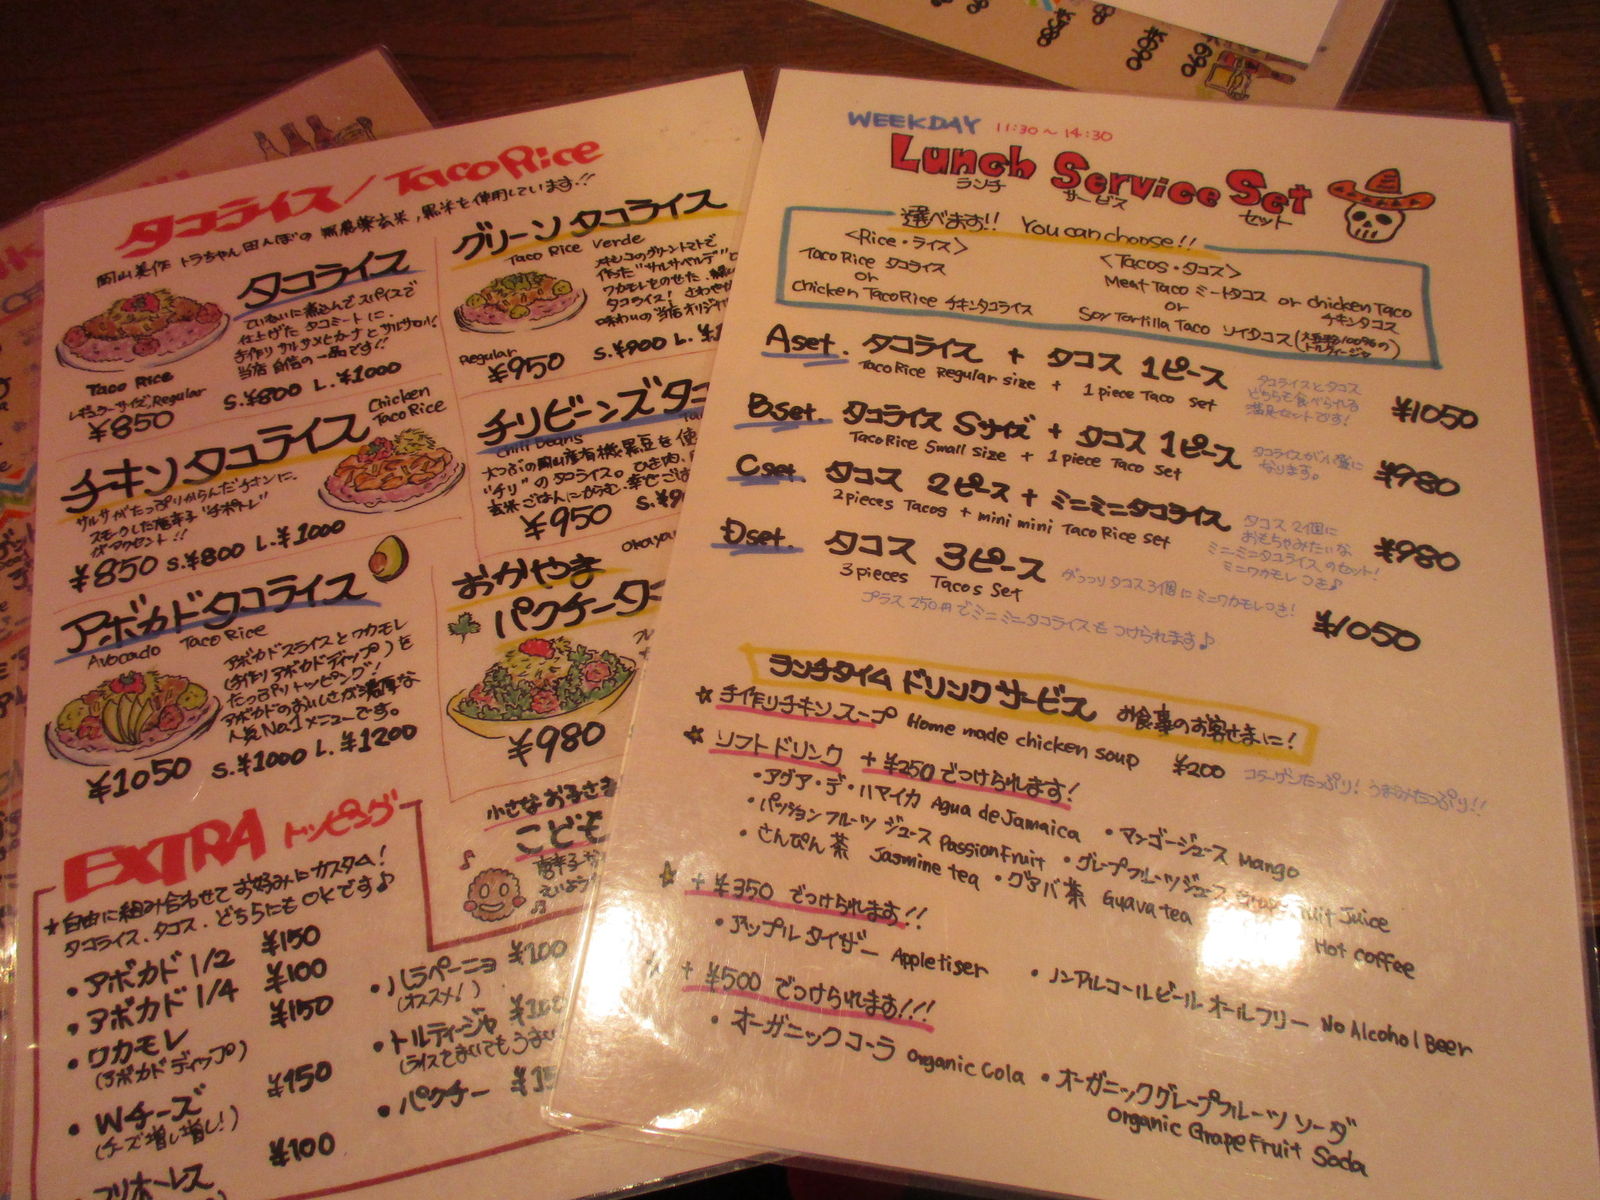 タコライス/Taco Rice
岡山美作 トラちゃん田んぼの 無農薬玄米、黒米を使用しています!!
タコライス
ていねいに煮込んでスパイスで
仕上げた タコミートに、
手作りサルサメヒカーナとサルサロハ!
当店自信の一品です!!
Taco Rice
レギュラーサイズ, Regular
¥850
S.¥800 L.¥1000
チキンタコライス
Chicken
Taco Rice
サルサがたっぷりからんだチキンに、
スモークした唐辛子"チポトレ"
がアクセント!!
¥850 S.¥800 L.¥1000
アボカドタコライス
Avocado Taco Rice
アボカドスライスとワカモレ
(手作りアボカドディップ)を
たっぷりトッピング!
アボカドのおいしさが濃厚な
人気No.1メニューです。
¥1050 S.¥1000 L.¥1200
グリーンタコライス
Taco Rice Verde
メキシコのグリーントマトで
作った"サルサベルデ"と
ワカモレをのせた、
タコライス! さわやか
味わいの当店オリジナ
Regular
¥950
S.¥900 L.
チリビーンズタコ
Chili beans
大つぶの岡山産有機黒豆を使
"チリ"のタコライス。ひき肉、
玄米ごはんにからむ、幸せごは
¥950
おかやま
パクチータコ
¥980
小さなお子さま
こども
EXTRA トッピング
★自由に組み合わせてお好みにカスタム!
タコライス、タコス、どちらにもOKです♪
・アボカド 1/2 ¥150
・アボカド 1/4 ¥100
・ワカモレ ¥150
(アボカドディップ)
・Wチーズ ¥150
(チーズ増し増し!)
フリホーレス ¥100
・ハラペーニョ ¥100
(オススメ!)
・トルティージャ ¥100
(ライスをまいてもうまい
・パクチー ¥15
WEEKDAY 11:30~14:30
Lunch Service Set
ランチ サービス セット
選べます!! You can choose!!
<Rice・ライス>
Taco Rice タコライス
or
Chicken Taco Rice チキンタコライス
<Tacos・タコス>
Meat Taco ミートタコス or chicken Taco
チキンタコス
or
Soy Tortilla Taco ソイタコス(大豆粉100%の
トルティージャ)
A set. タコライス + タコス 1ピース
Taco Rice Regular size + 1 piece Taco set
タコライスとタコス
どちらも食べられる
満足セットです!
¥1050
B set. タコライス Sサイズ + タコス 1ピース
Taco Rice Small size + 1 piece Taco set
タコライスが小盛に
なります。
¥980
C set. タコス 2ピース + ミニミニタコライス
2 pieces Tacos + mini mini Taco Rice set
タコス2個に
おもちゃみたいな
ミニミニタコライスのセット!
ミニワカモレつき♪
¥980
D set. タコス 3ピース
3 pieces Tacos Set
がっつりタコス3個にミニワカモレつき!
プラス250円でミニミニタコライスもつけられます♪
¥1050
ランチタイムドリンクサービス お食事のお客さまに!
☆手作りチキンスープ Home made chicken soup ¥200 コラーゲンたっぷり! うまみたっぷり!!
☆ソフトドリンク +¥250でつけられます!
・アグア・デ・ハマイカ Agua de Jamaica ・マンゴージュース Mango
・パッションフルーツジュース Passion Fruit ・グレープフルーツジュース Grapefruit Juice
・さんぴん茶 Jasmine tea ・グアバ茶 Guava tea Hot coffee
☆+¥350でつけられます!!
・アップルタイザー Appletiser ・ノンアルコールビール オールフリー No Alcohol Beer
☆+¥500でつけられます!!!
・オーガニックコーラ Organic Cola ・オーガニックグレープフルーツソーダ
Organic Grapefruit Soda